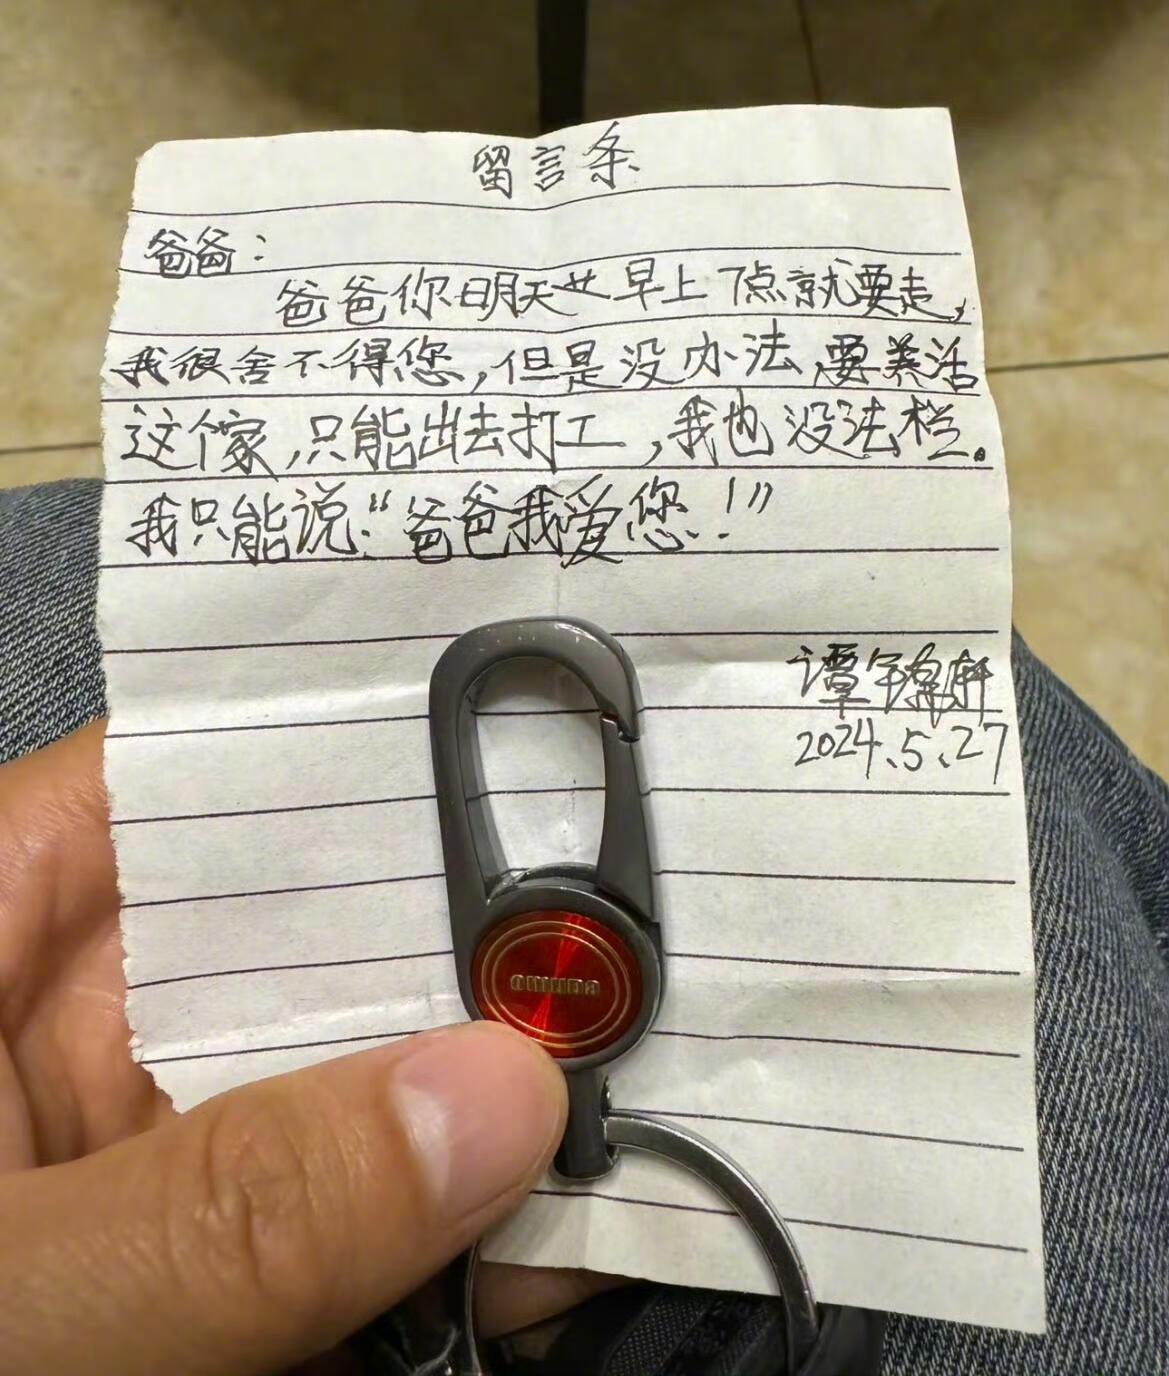 留言条
爸爸：
爸爸你明天早上7点就要走，
我很舍不得您，但是没办法，要养活
这个家，只能出去打工，我也没法栏。
我只能说：“爸爸我爱您！”
谭 轩
2024.5.27